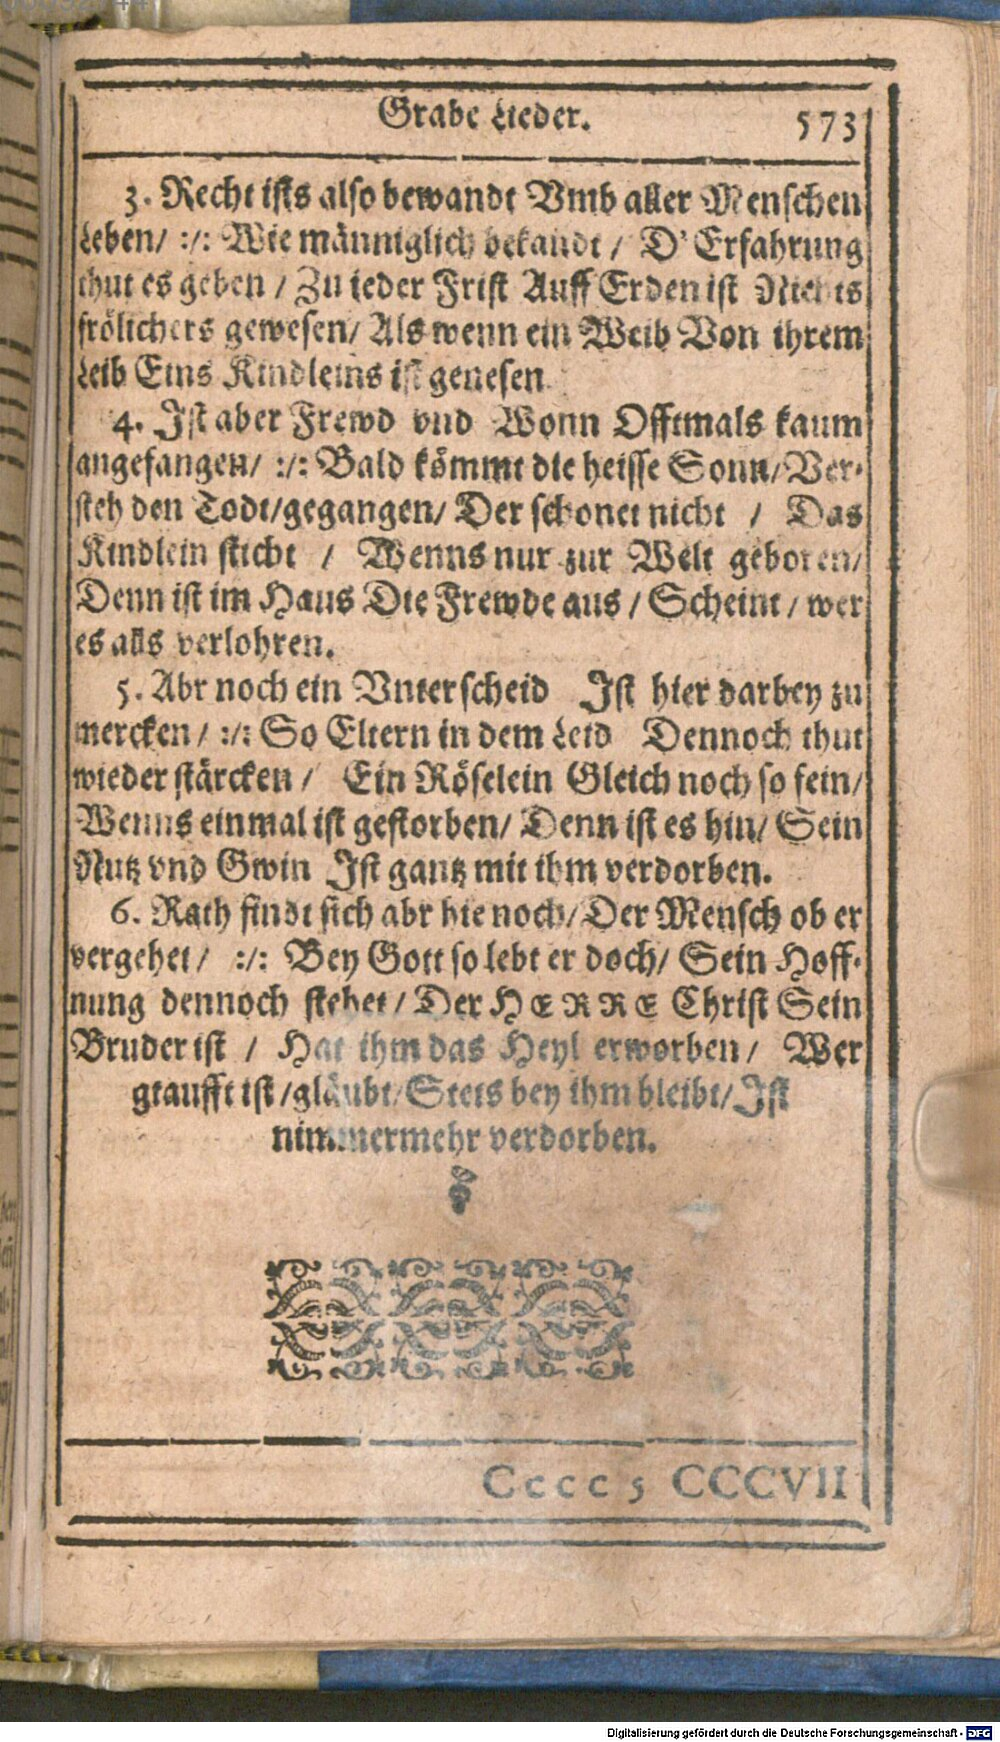 Grabe Lieder. 573
3. Recht ists also bewandt Vmb aller Menschen
Leben/ :/: Wie männiglich bekandt / D' Erfahrung
thut es geben / Zu jeder Frist Auff Erden ist Nichts
frölichers gewesen/ Als wenn ein Weib Von ihrem
Leib Eins Kindleins ist genesen.
4. Ist aber Frewd vnd Wonn Offtmals kaum
angefangen/ :/: Bald kömmt die heisse Sonn/ Ver-
steh den Todt/gegangen/ Der schonet nicht / Das
Kindlein sticht / Wenns nur zur Welt geboren/
Denn ist im Haus Die Frewde aus / Scheint / wer
es alls verlohren.
5. Abr noch ein Vnterscheid Ist hier darbey zu
mercken / :/: So Eltern in dem Leid Dennoch thut
wieder stärcken / Ein Röselein Gleich noch so fein/
Wenns einmal ist gestorben/ Denn ist es hin/ Sein
Nutz vnd Gwin Ist gantz mit ihm verdorben.
6. Rath findt sich abr hie noch/ Der Mensch ob er
vergehet / :/: Bey Gott so lebt er doch/ Sein Hoff-
nung dennoch stehet / Der HERRE Christ Sein
Bruder ist / Hat ihm das Heyl erworben / Wer
gtaufft ist /gläubt/ Stets bey ihm bleibt/ Ist
nimmermehr verdorben.
Cccc 5 CCCVII
Digitalisierung gefördert durch die Deutsche Forschungsgemeinschaft - DFG